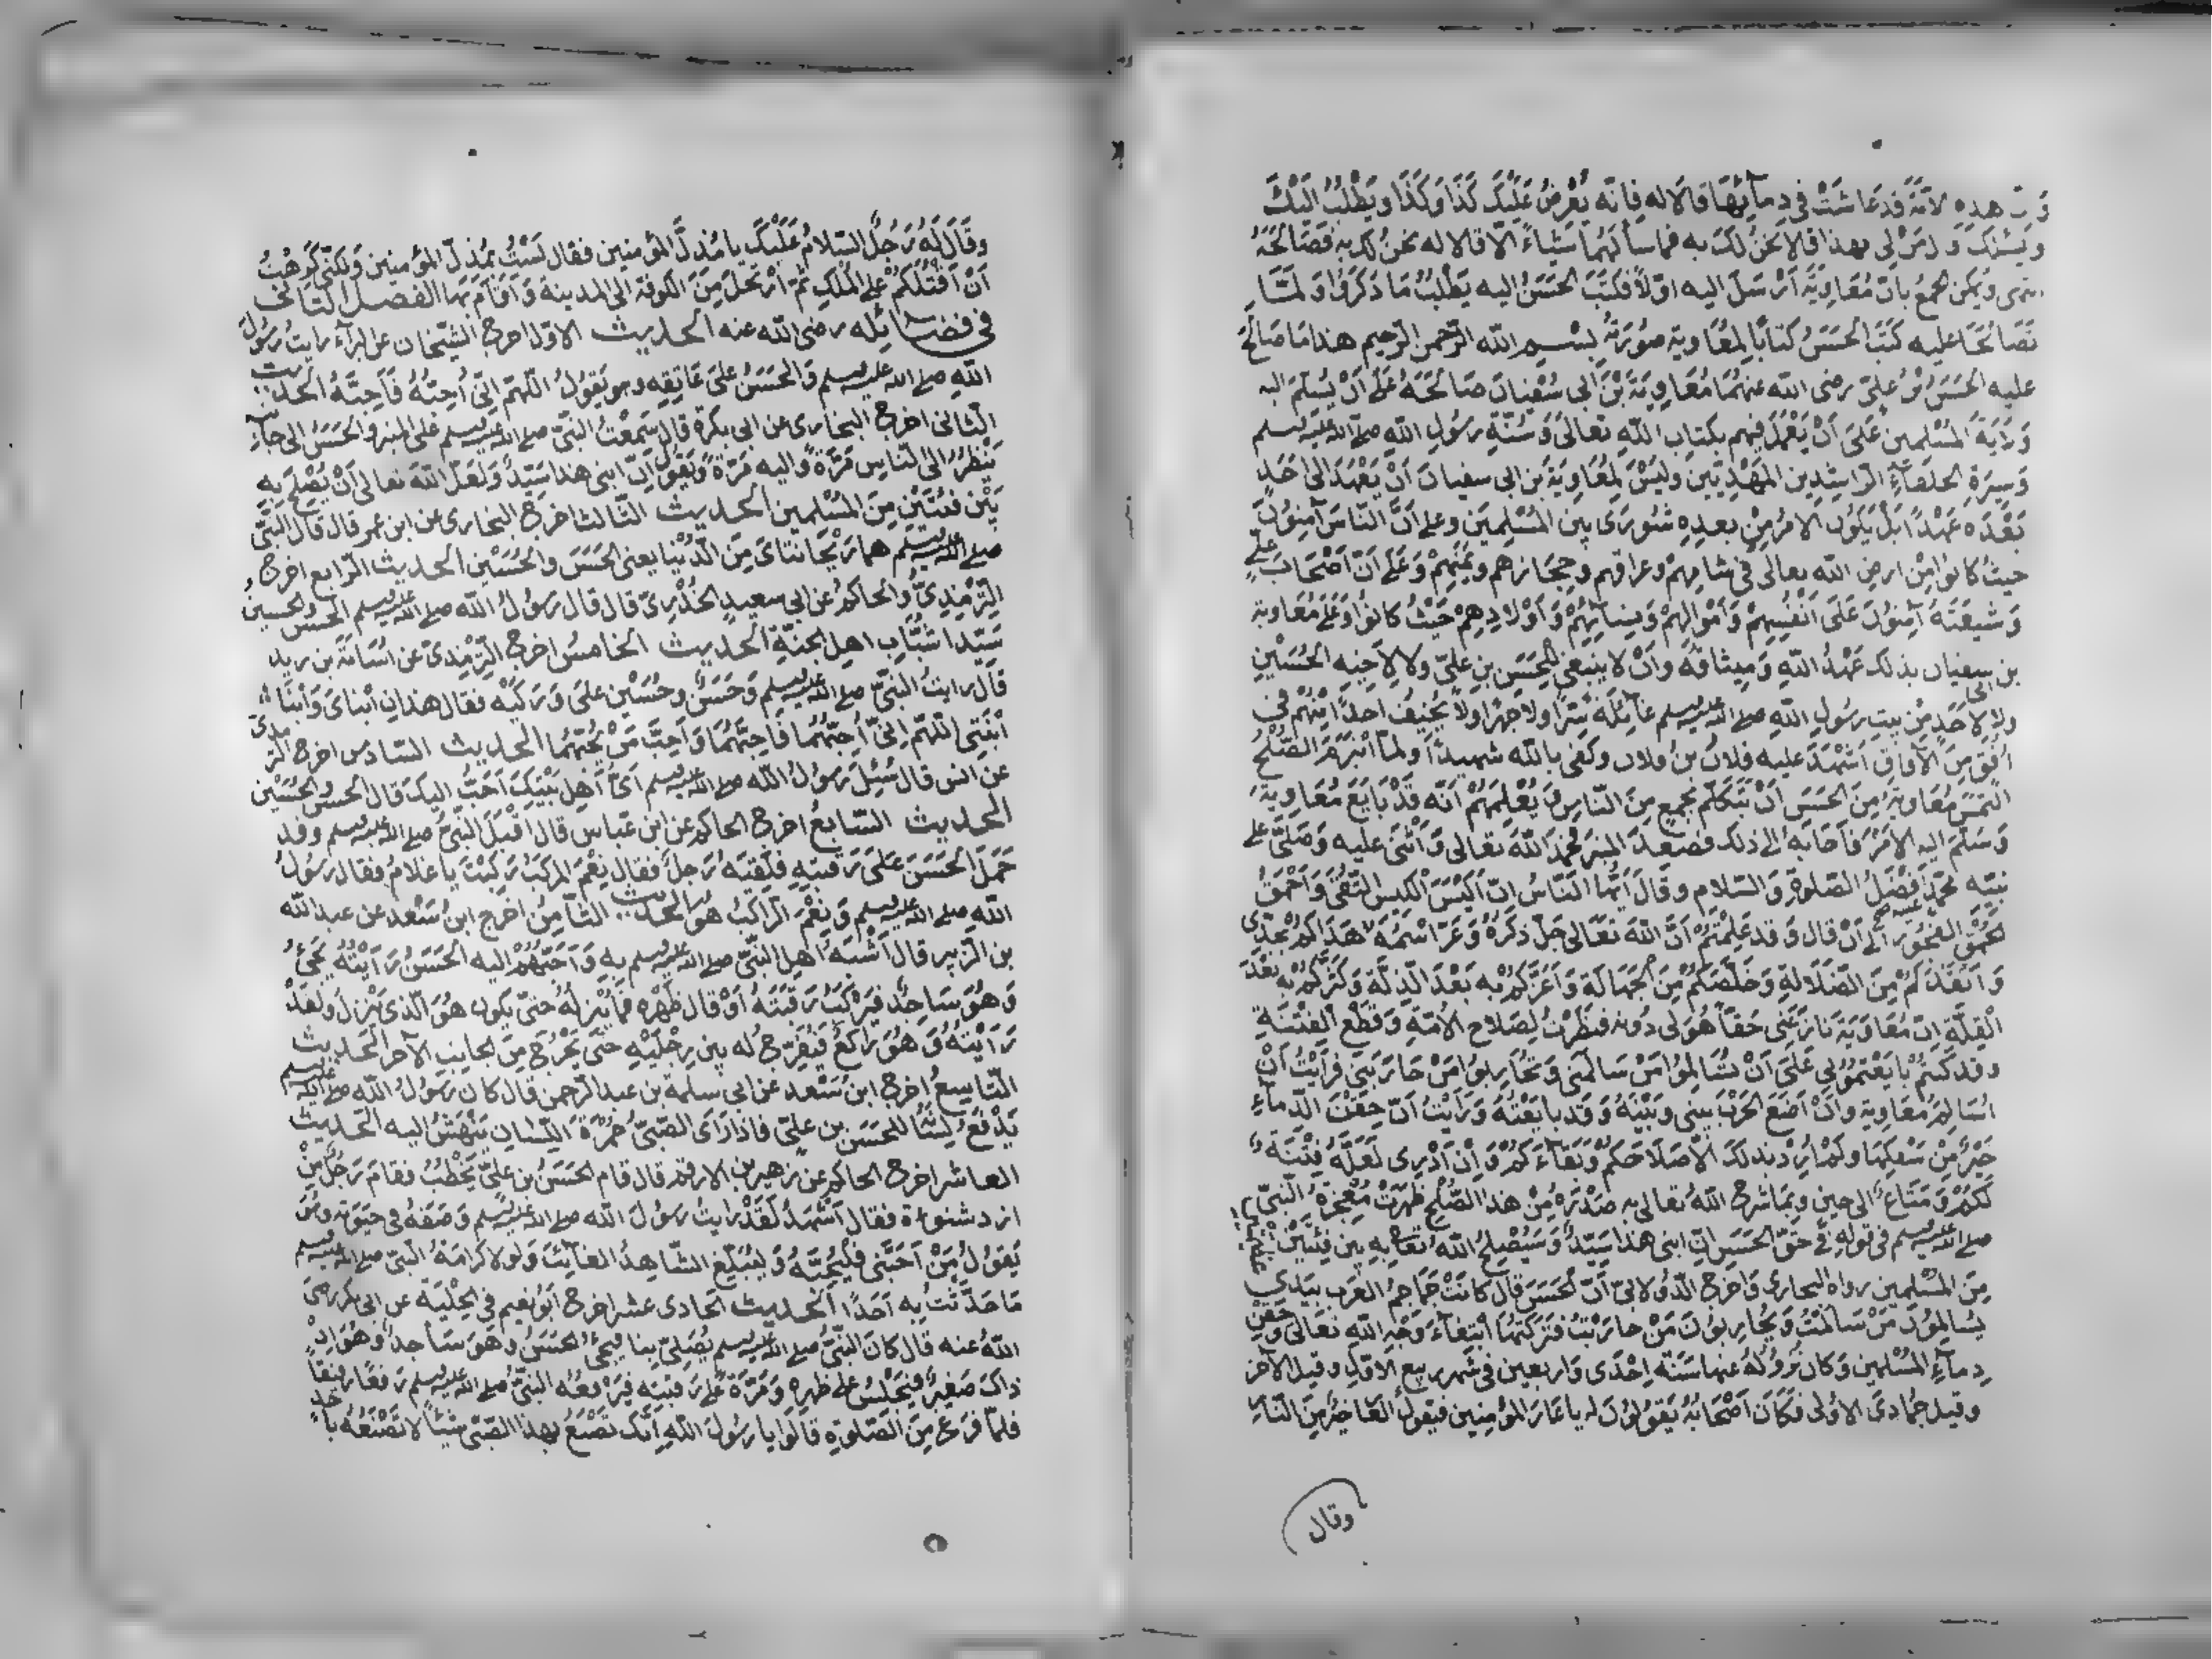 هذه الامّة قد عاثت في دمآئها قالا له فانّه يَعْرِضُ عَلَيْكَ كَذَا وَكَذَا ويَطْلُبُ اِلَيْكَ
لى بهذا قالا نحنُ لكَ به فما سألهما شيئاً الّا قالا له نحنُ لكَ به فصَالَحَهُ
ويمكن الجمعُ بانّ مُعَاوِيَةَ اَرْسَلَ اليه اوّلاً فكتَبَ الحَسَنُ اليه يَطْلُبُ مَا ذكرَ وَلمّا
تصَالحَا عليه كتَبَ الحَسَنُ كتاباً لِمُعَاوية صُورَتُهُ بسْمِ الله الرّحمن الرّحيم هذا مَا صَالَحَ
عليه الحَسَنُ بْنُ عليّ رضى الله عنهُمَا مُعَاوِيَةَ بْنَ اَبى سُفْيَانَ صَالحَهُ عَلَى اَنْ يُسَلِّمَ اليه
وِلَايَةَ المُسْلِمينَ عَلَى اَنْ يَعْمَلَ فيهم بكتابِ اللّٰهِ تعَالى وَسُنَّةِ رسُولِ اللّٰهِ صلى الله عليه وسلم
وَسِيرَةِ الخلفَآءِ الرّاشِدِين المَهْدِيّين وليْسَ لِمُعَاوِيَةَ بن ابى سفيانَ اَنْ يَعْهَدَ الى اَحَدٍ
بَعْدَهُ عَهْداً بَلْ يَكُون الامرُ مِنْ بعدِه شُورَى بَينَ المُسْلِمِينَ وعلى اَنَّ النّاسَ آمِنُونَ
حيثُ كانوا مِنْ ارضِ اللّٰه تعالى فى شامِهِمْ وعراقهم وحِجَازهم ويَمَنِهِمْ وَعَلَى اَنّ اَصْحَابَ علىّ
وَشيعَتَهُ آمِنُونَ عَلَى اَنْفُسِهِمْ وَاَمْوَالهِمْ وَنِسَآئِهِمْ وَاَوْلادِهِمْ حَيْثُ كانُوا وَعَلَى مُعَاوية
بن سفيان بذلك عَهْدُ اللّٰهِ وَمِيثاقُهُ وانْ لا يبتغى لِلحَسَنِ بنِ علىّ ولا لاَخِيهِ الحُسَيْنِ
ولا لاَحَدٍ مِنْ بيتِ رَسُولِ اللّٰهِ صلى الله عليه وسلم غآئِلَةً سِرّاً ولا جهراً ولا يُخِيفُ احداً مِنْهُم فى
اُفُقٍ مِنَ الآفاقِ اَشْهَدَ عليه فلانُ بنُ فلان وكفى باللّٰه شهيداً ولمّا انْبَرَمَ الصُّلْحُ
التمَسَ مُعَاويةُ مِنَ الحَسَنِ اَنْ يَتَكلّمَ بجمعٍ مِنَ النّاسِ ويُعْلِمَهُمْ اَنّه قَدْ بَايَعَ مُعَاوِيَةَ
وَسَلَّمَ اليه الامْرَ فَاَجَابَهُ الى ذلك فصَعِدَ المِنبَر فحَمِدَ اللّٰهَ تعَالى وَاَثْنَى عليه وَصَلّى على
نبيّه محمّدٍ اَفْضَلُ الصّلوةِ وَالسّلام وقَالَ اَيُّهَا النَّاسُ اِنّ اَكْيَسَ الكيس التُّقَى وَاَحْمَقَ
الحُمْقِ الفجُورُ الى اَنْ قال وَقد عَلِمْتُمْ اَنَّ اللّٰهَ تعَالى جَلّ ذكرُهُ وَعَزّ اسْمُهُ هَدَاكُمْ بِجَدّى
وَاَنقَذَكُمْ مِنَ الضّلَالةِ وَخَلّصَكُمْ مِنَ الجَهَالَةِ وَاَعَزّكُمْ به بَعْدَ الذِّلّة وَكَثّرَكمْ به بعْدَ
القِلّةِ اِنّ مُعَاوِيَةَ نازَعَنى حَقّاً هُوَ لى دُونَهُ فنظَرْتُ لِصَلاحِ الامّةِ وَقَطْعِ الفِتْنَةِ
وقد كنتُمْ بايَعْتمُونى عَلَى اَنْ تُسَالِمُوا مَنْ سَالَمَنى وَتُحَارِبُوا مَنْ حَارَبَنى فرَاَيْتُ اَنْ
اُسَالِمَ مُعَاوِيَةَ واَنْ اَضَعَ الحَرْبَ بينى وبَيْنَهُ وَقد بايَعْتُهُ وَرَاَيْتُ اَنّ حِقْنَ الدّمآءِ
خَيْرٌ مِنْ سَفْكِهَا ولَمْ اُرِدْ بذلكَ الّا صَلَاحَكُمْ وَبَقآءَ كُمْ وَاِنْ اَدْرِى لَعَلّهُ فِتْنَةٌ
لَكُمْ وَمَتَاعٌ الى حين وبِمَا شرحَ اللّٰهُ تعَالى بِهِ صَدْرَهُ مِنْ هذا الصُّلْحِ ظَهَرَتْ مُعْجِزَةُ النّبىّ
صلى الله عليه وسلم فى قوله فى حقّ الحَسَنِ اِنّ ابنى هذا سَيّدٌ وَسَيُصْلِحُ اللّٰهُ تعالى بِهِ بين فِئَتَيْنِ
مِنَ المُسْلمين رواه البخارى وَاخرج الدّولابىّ اَنّ الحَسَنَ قَالَ كانَتْ جَمَاجِمُ العَرَبِ بيَدِى
يُسَالِمُونَ مَنْ سَالَمْتُ وَيُحَارِبُونَ مَنْ حارَبْتُ فتركْتُهَا ابْتِغآءَ وَجْهِ اللّٰهِ تعَالى وَحَقْنِ
دمآءِ المُسْلمِين وَكان نُزُولُهُ عنها سَنَةَ اِحْدَى وَاربعين فى شهر ربيع الاوّل وقيل الآخر
وقيل جُمَادى الاولى فكَانَ اَصْحَابُهُ يَقُولُونَ له ياعَارَ المُؤمِنِين فيقول العَارُ خَيْرٌ مِنَ النّارِ
وقال
وقَالَ لَهُ رَجُلٌ السّلامُ عَلَيْكَ يا مُذِلَّ المُؤمنين فقال لَسْتُ بمُذِلّ المؤمنين وَلكنّى كَرِهْتُ
اَنْ اَقْتُلَكُمْ عَلَى المُلكِ ثمّ ارْتَحَلَ مِنَ الكوفة الى المدينة وَاَقَامَ بهَا الفصل الثالث
فى فضائله رضى اللّٰه عنه الحديث الاوّل اخرج الشيخان عن البرآء رايتُ رسُولَ
اللّٰهِ صلى الله عليه وسلم وَالحَسَنُ عَلَى عَاتِقِهِ وهو يَقُولُ اللّهمّ انّى اُحِبّهُ فَاَحِبّهُ الحديث
الثانى اخرج البخارى عن ابى بكرة قال سَمِعْتُ النبىّ صلى الله عليه وسلم على المنبر والحَسَنُ الى جَنبِهِ
يَنْظُرُ الى النّاسِ مَرّةً وَاليه مَرّةً وَيَقُول اِنّ ابنى هذا سَيّدٌ وَلعَلّ اللّٰهَ تعالى اَنْ يُصْلِحَ بِهِ
بَيْنَ فِئَتَيْنِ مِنَ المُسْلمين الحديث الثّالث اخرج البخارى عن ابن عمر قال قالَ النّبىّ
صلى الله عليه وسلم هما رَيْحَانَتَاىَ مِنَ الدّنْيا يعنى الحَسَنَ والحُسَيْن الحديث الرّابع اخرج
التّرْمِذِىُّ وَالحاكمُ عن ابى سعيدٍ الخُدْرىّ قال قال رَسُولُ اللّٰه صلى الله عليه وسلم الحسن والحسين
سَيّدا شُبّابِ اهل الجنّةِ الحديث الخامس اخرج الترْمِذىّ عن اُسَامَةَ بن زيد
قال رايتُ النّبىّ صلى الله عليه وسلم وَحَسَنٌ وحُسَيْن على وَرَكَيْهِ فقال هذانِ ابْناىَ وَابْنَا
ابْنَتِى اللّهمّ اِنّى اُحِبّهُمَا فَاَحِبّهُمَا وَاَحِبّ مَنْ يُحِبّهُمَا الحديث السّادس اخرج الترمذىّ
عن انس قال سُئِلَ رَسُولُ اللّٰه صلى الله عليه وسلم اَىُّ اَهْل بَيْتِكَ اَحَبُّ اليكَ قال الحَسَنُ والحُسَيْن
الحديث السّابعُ اخرج الحاكم عن ابن عبّاس قال اَقْبَلَ النّبىّ صلى الله عليه وسلم وقد
حَمَلَ الحَسَنَ عَلَى رَقَبَتِهِ فلَقِيَهُ رَجلٌ فقال نِعْمَ المَرْكَبُ رَكِبْتَ يا غلامُ فقال رَسُولُ
اللّٰهِ صلى الله عليه وسلم وَنِعْمَ الرّاكبُ هُوَ الحديث الثّامِنُ اخرَج ابنُ سَعْد عن عبد اللّٰه
بن الزّبير قال اَشْبَهُ اَهل النّبىّ صلى الله عليه وسلم بِهِ وَاَحَبّهُمْ اليه الحَسَنُ رَاَيْتُهُ يَجىُٔ
وَهُوَ سَاجِدٌ فيَرْكَبُ رَقَبَتَهُ اَوْ قال ظَهْرَهُ فمَا يُنْزِلُهُ حتى يكون هُوَ الّذى يَنْزِلُ ولَقَدْ
رَاَيْتُهُ وَهُوَ رَاكِعٌ فيُفَرّجُ لَه بَين رِجْلَيْهِ حَتّى يَخْرُجَ مِنَ الجانِبِ الآخَر الحَديث
التّاسِعُ اخرج ابنُ سَعْد عن ابى سلمة بن عبد الرّحمن قال كان رسُولُ اللّٰه صلى الله عليه وسلم
يَدْلَعُ لِسَانَهُ للحَسَن بن علىّ فاذا رَاَى الصّبىُّ حُمْرَة اللّسَان يَهُشُّ اليه الحَديث
العاشر اخرج الحاكم عن زهير بن الارقم قال قام الحَسَنُ بن علىّ يَخْطُبُ فقامَ رَجُلٌ مِنْ
ازد شنوءة فقال اَشْهَدُ لَقَدْ رايتُ رسُولَ اللّٰه صلى الله عليه وسلم وَاضِعَهُ فى حبوته وهُوَ
يَقُولُ مَنْ اَحَبّنى فَليُحِبّهُ وَليُبَلّغِ الشّاهِدُ الغآئِبَ وَلولا كَرَامَةُ النّبىّ صلى الله عليه وسلم
مَا حَدّثتُ بِه اَحَدًا الحديث الحَادى عشر اخرج اَبُو نعيم فى الحِلْيَة عن ابى بكر رضى
اللّٰهُ عنه قال كانَ النّبىُّ صلى الله عليه وسلم يُصَلّى بنا فيَجىُٔ الحَسَنُ وهو سَاجدٌ وَهُوَ اِذْ
ذاكَ صَغيرٌ فيَجْلسُ عَلَى ظهرِهِ وَمَرّةً عَلَى رَقَبَتِه فيَرْفعُهُ النبىُّ صلى الله عليه وسلم رَفعًا رفيقاً
فلمّا فرَغ مِنَ الصّلوةِ قالوا يا رَسُولَ اللّٰهِ اِنّكَ تَصْنَعُ بهذا الصّبىّ شيْئاً لا تَصْنَعُهُ بأحد